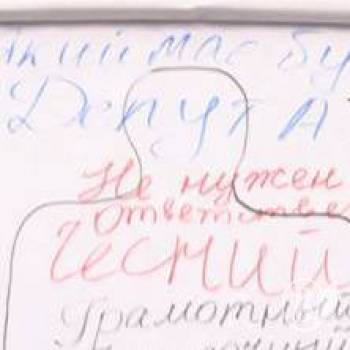 Який має бу
Депута
Не нужен
ответстве
Чесний
Грамотный